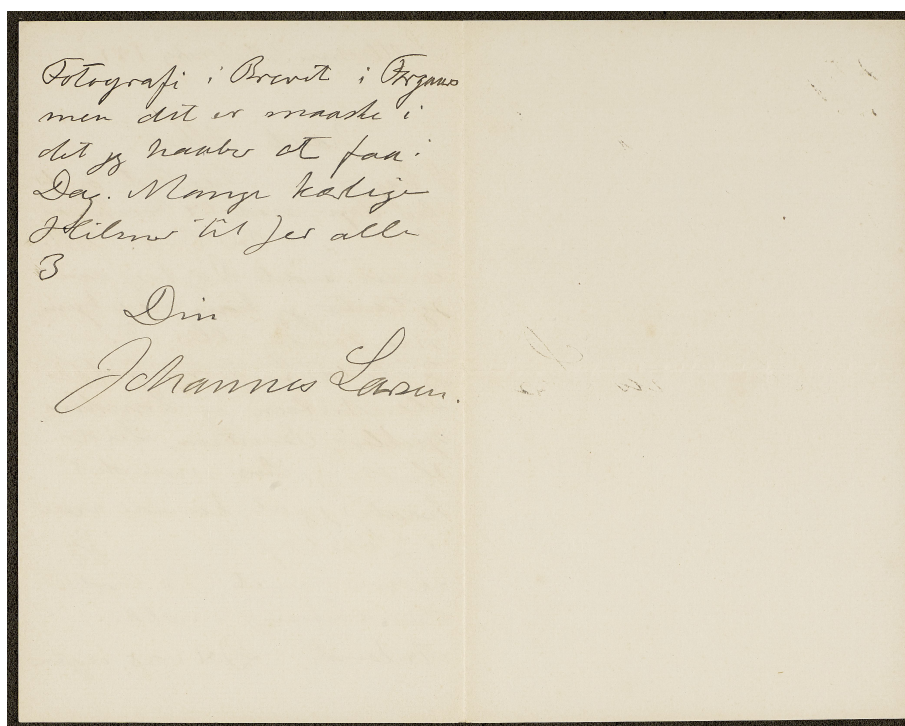 Fotografi i Brevet i Forgaars
men det er maaske i
det jeg haaber at faa i
Dag. Mange kærlige
Hilsner til Jer alle
3
Din
Johannes Larsen.